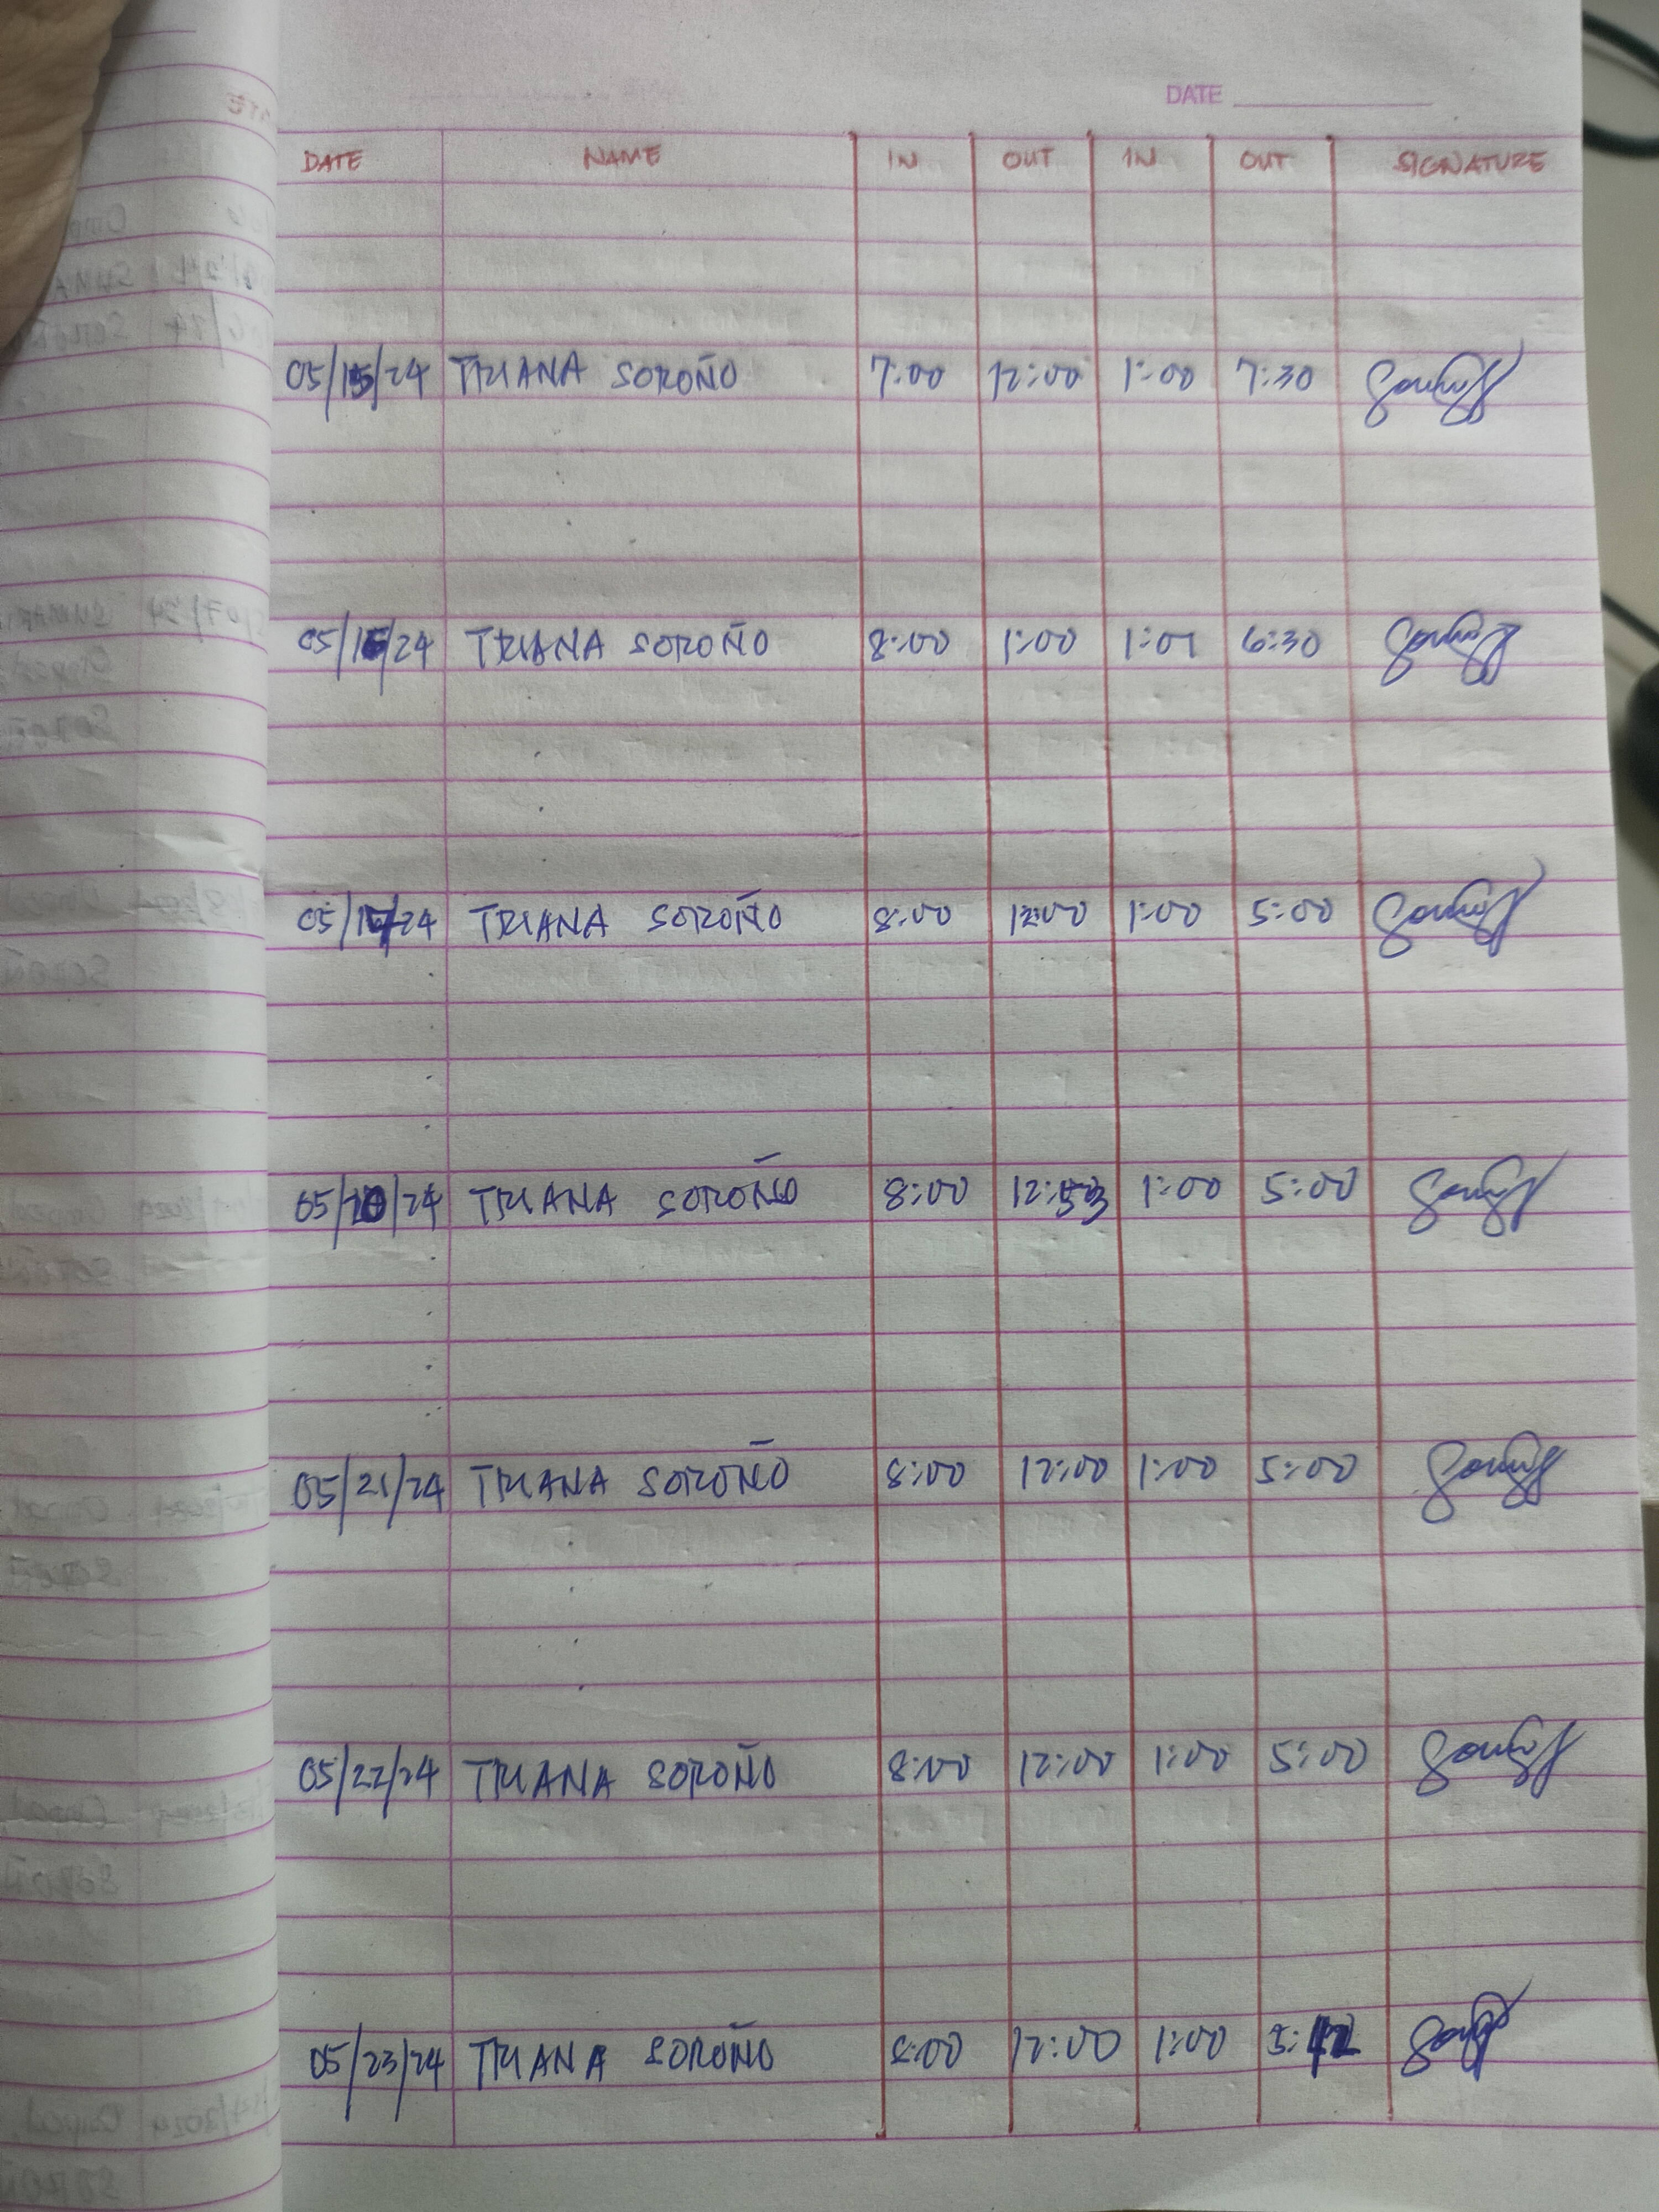 DATE
DATE NAME IN OUT IN OUT SIGNATURE
05/15/24 TRIANA SOROÑO 7:00 12:00 1:00 7:30
05/16/24 TRIANA SOROÑO 8:00 1:00 1:01 6:30
05/17/24 TRIANA SOROÑO 8:00 12:00 1:00 5:00
05/20/24 TRIANA SOROÑO 8:00 12:53 1:00 5:00
05/21/24 TRIANA SOROÑO 8:00 12:00 1:00 5:00
05/22/24 TRIANA SOROÑO 8:00 12:00 1:00 5:00
05/23/24 TRIANA SOROÑO 8:00 12:00 1:00 5:12